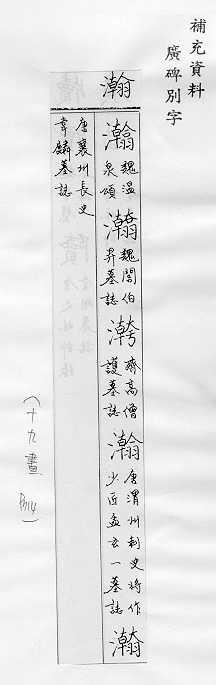 補充資料
廣碑別字
瀚
瀚 魏溫泉頌 瀚 魏閻伯昇墓誌 瀚 齊高僧護墓誌 瀚 唐渭州刺史將作少匠孟玄一墓誌 瀚
唐襄州長史韋麟墓誌
(十九畫)